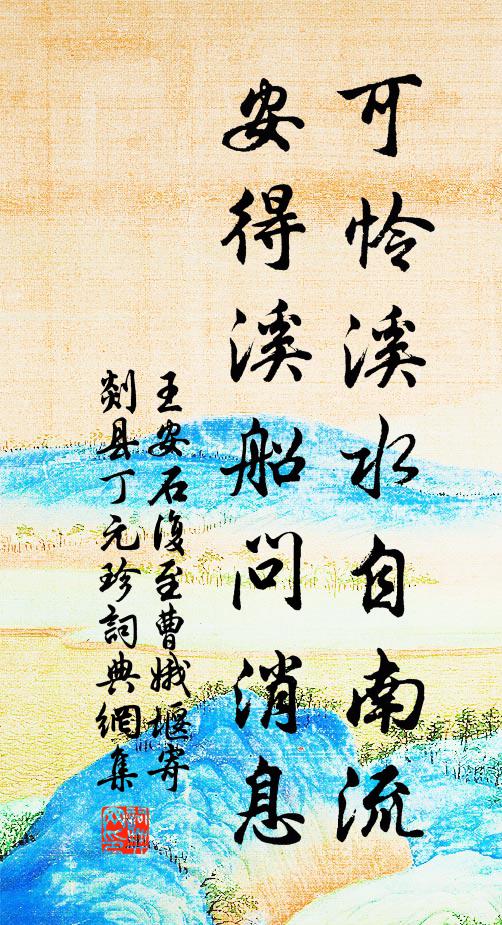 可怜溪水自南流
安得溪船问消息
王安石復至曹娥堰寄
剡县丁元珍詞典網集